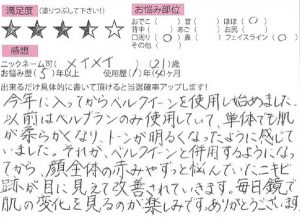 満足度(塗りつぶして下さい!) お悩み部位
★★★★☆
おでこ( ) 首( ) ほほ(○)
背中( ) あご( ) お尻( )
口周り(○) 鼻( ) フェイスライン(○)
その他( )
感想
ニックネーム可( メイメイ )(21)歳
お悩み歴(5)年以上 使用歴(1)年( )ヶ月
出来るだけ具体的に書いて頂けると当選確率アップします!
今年に入ってからベルクイーンを使用し始めました。
以前はベルブランのみ使用していて、単体でも肌
が柔らかくなり、トーンが明るくなったように感じて
いました。それが、ベルクイーンと併用するようになっ
てから、顔全体の赤みやずっと悩んでいたニキビ
跡が目に見えて改善されていきます。毎日鏡で
肌の変化を見るのが楽しみです。ありがとうございます